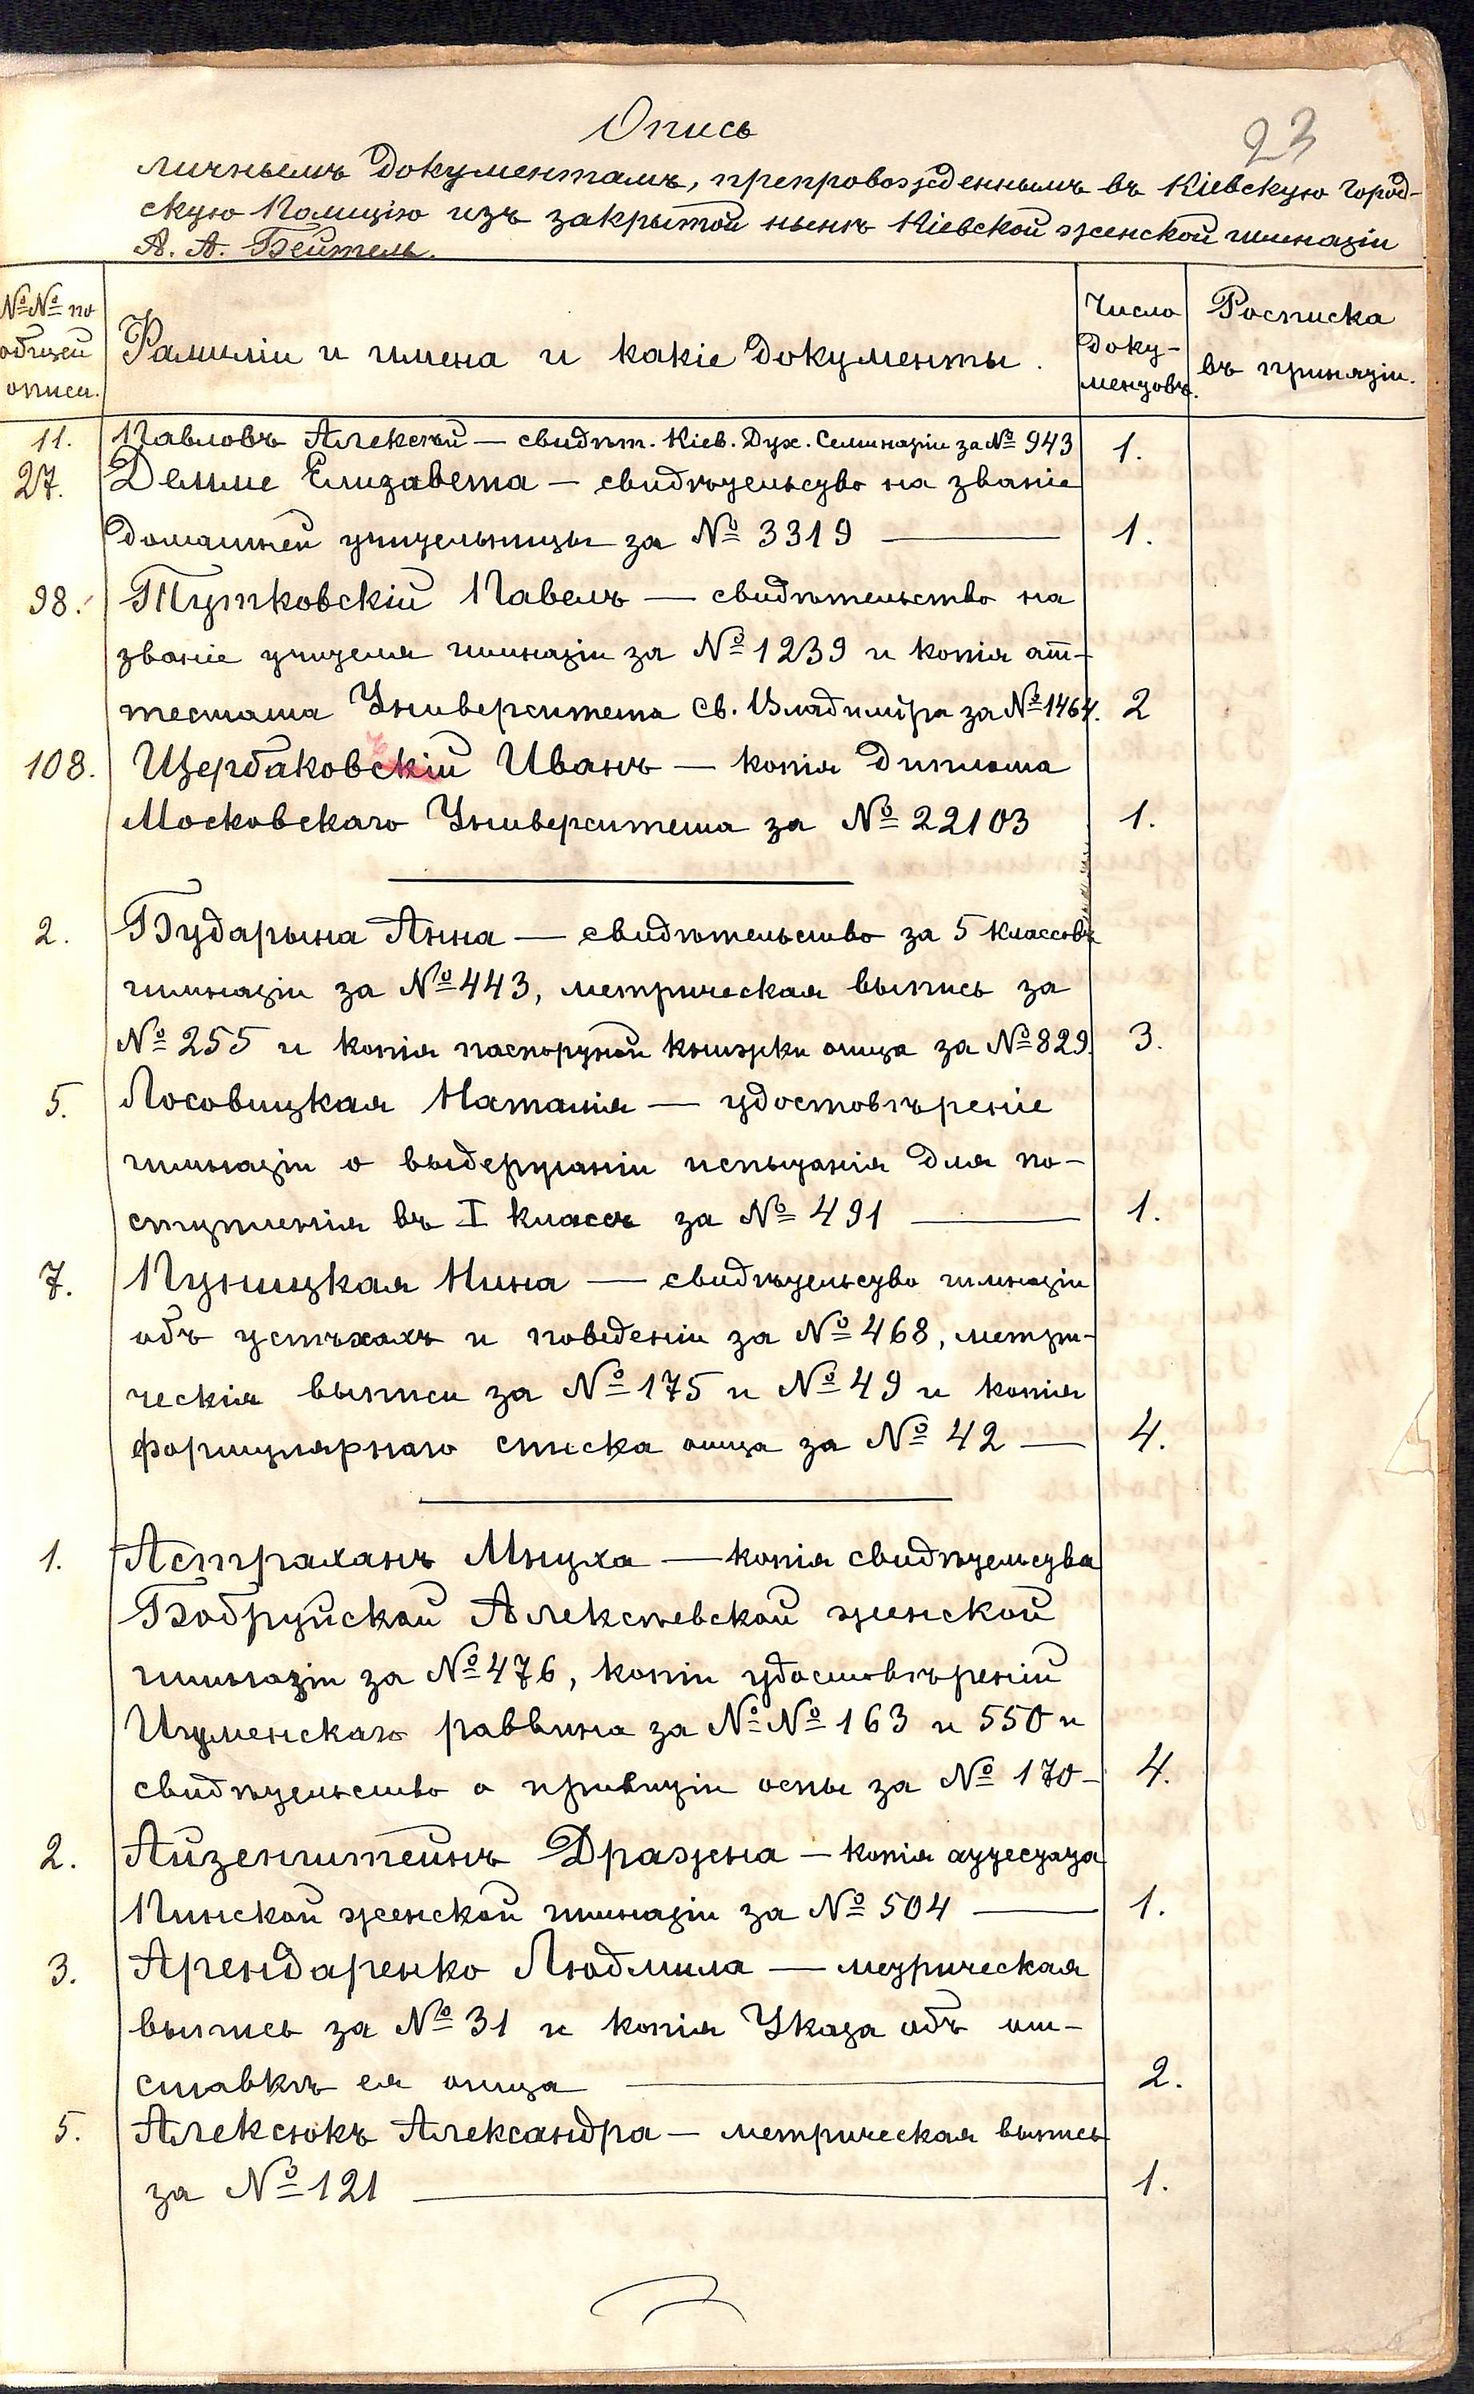 23
Опись
личнымъ документамъ, препровожденнымъ въ Кіевскую Город-
скую Полицію изъ закрытой нынѣ Кіевской женской гимназіи
А. А. Бейтель.
№№ по общей описи.
Фамиліи и имена и какіе документы.
Число доку-ментовъ.
Росписка въ принятіи.
11. Павловъ Алексѣй — свидѣт. Кіев. Дух. Семинаріи за № 943 1.
27. Демме Елизавета — свидѣтельство на званіе
домашней учительницы за № 3319 — 1.
98. Тутковскій Павелъ — свидѣтельство на
званіе учителя гимназіи за № 1239 и копія ат-
тестата Университета Св. Владиміра за № 1464. 2
108. Щербаковскій Иванъ — копія диплома
Московскаго Университета за № 22103 1.
2. Бударина Анна — свидѣтельство за 5 классовъ
гимназіи за № 443, метрическая выпись за
№ 255 и копія паспортной книжки отца за № 829. 3.
5. Лосовицкая Наталія — удостовѣреніе
гимназіи о выдержаніи испытанія для по-
ступленія въ I классъ за № 491 — 1.
7. Пуницкая Нина — свидѣтельство гимназіи
объ успѣхахъ и поведеніи за № 468, метри-
ческія выписи за № 175 и № 49 и копія
формулярнаго списка отца за № 42 — 4.
1. Астраханъ Мнуха — копія свидѣтельства
Бобруйской Алексѣевской женской
гимназіи за № 476, копіи удостовѣреній
Игуменскаго раввина за №№ 163 и 550 и
свидѣтельство о привитіи оспы за № 170 — 4.
2. Айзенштейнъ Дражна — копія аттестата
Пинской женской гимназіи за № 504 — 1.
3. Арендаренко Людмила — метрическая
выпись за № 31 и копія Указа объ от-
ставкѣ ея отца — 2.
5. Алексюкъ Александра — метрическая выпись
за № 121 — 1.